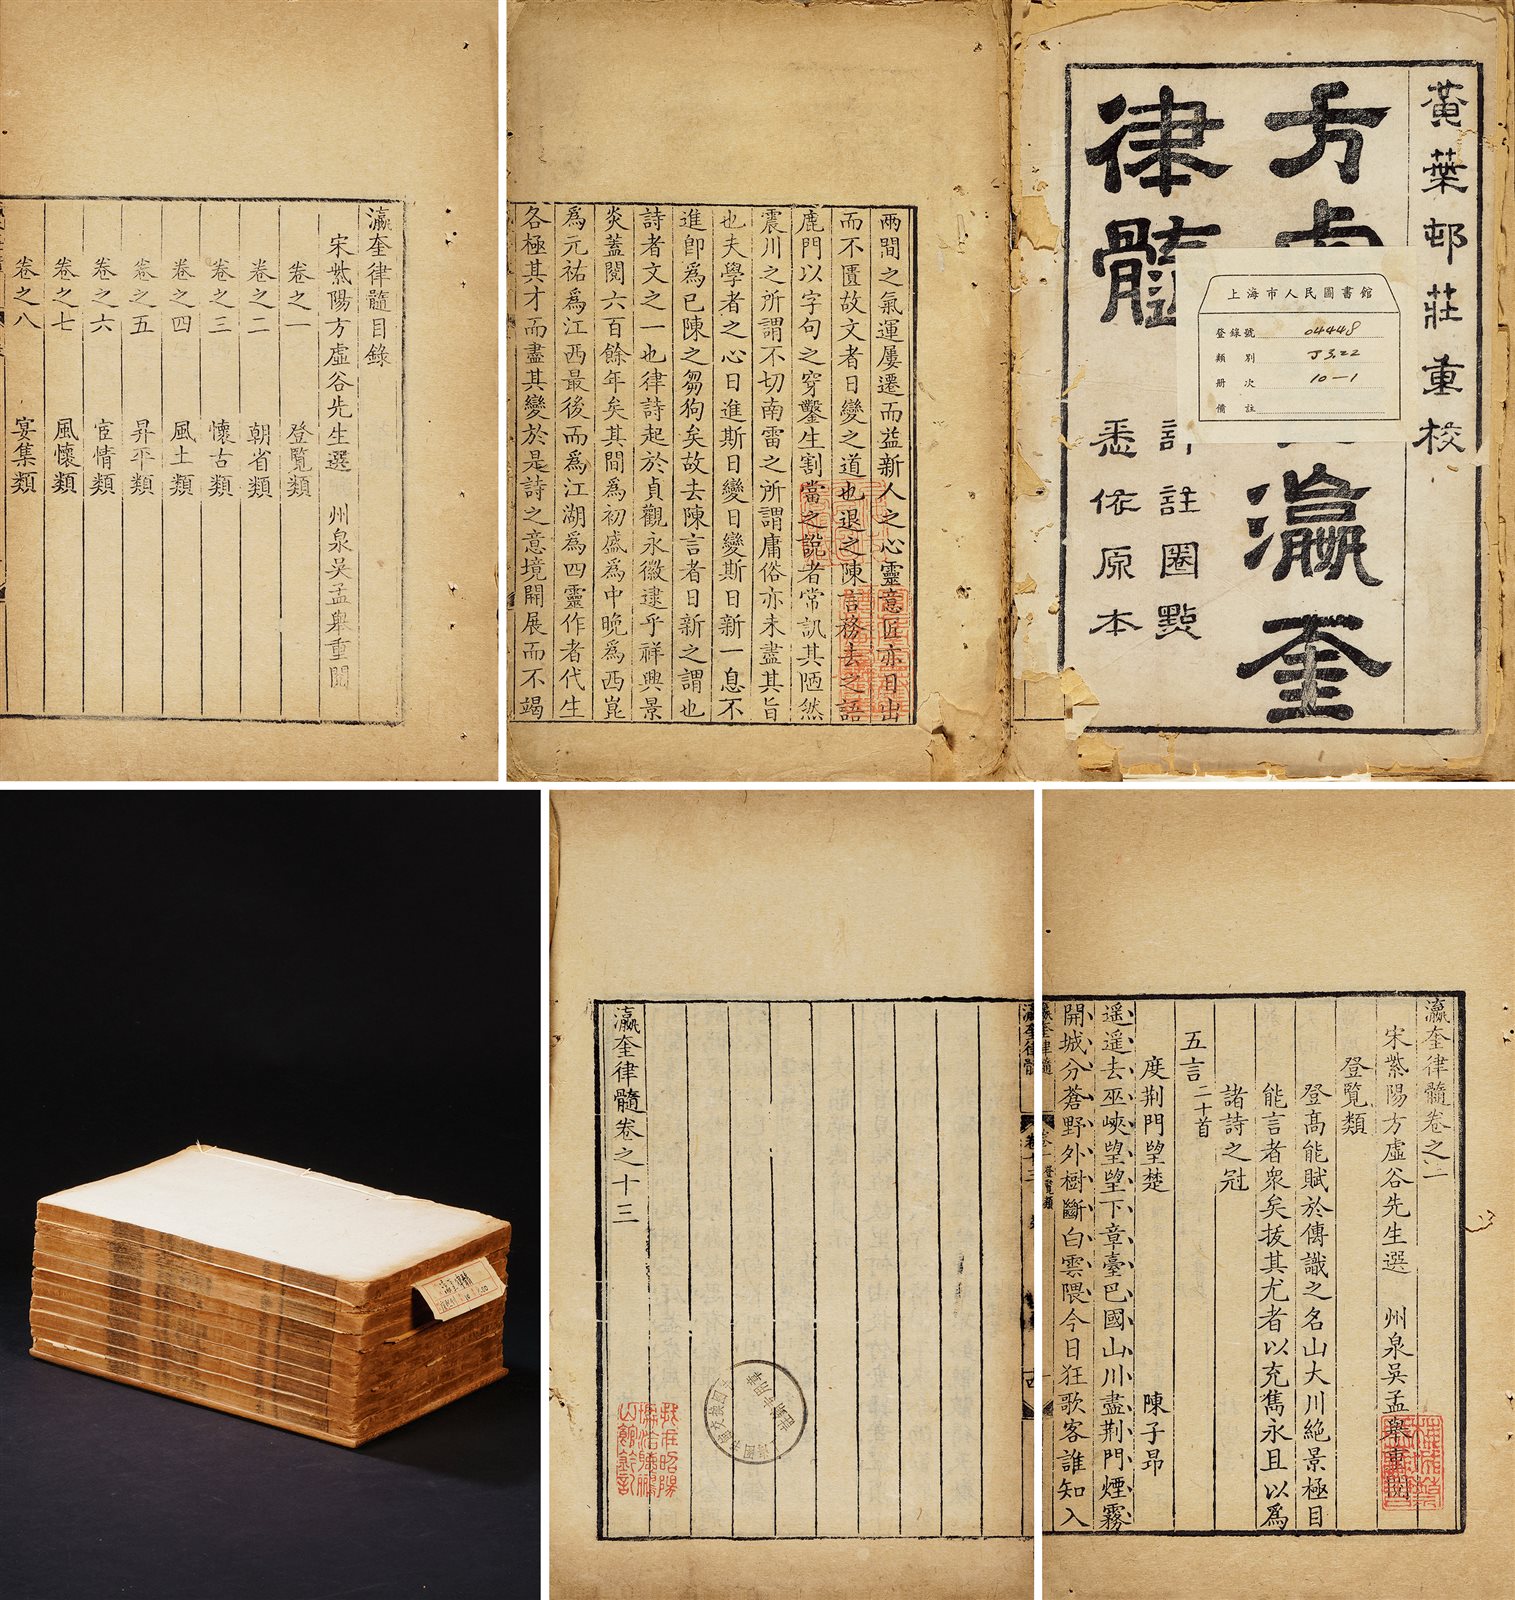 瀛奎律髓目錄
宋紫陽方虛谷先生選 州泉吳孟舉重閱
卷之一 登覽類
卷之二 朝省類
卷之三 懷古類
卷之四 風土類
卷之五 昇平類
卷之六 宦情類
卷之七 風懷類
卷之八 宴集類
黃葉邨莊重校
方虛
瀛奎
律髓
註圈點
悉依原本
上海市人民圖書館
登錄號 04448
類別 J3.22
册次 10—1
備註
兩間之氣運屢遷而益新人之心靈意匠亦日出
而不匱故文者日變之道也退之陳言務去之語
鹿門以字句之穿鑿生割當之說者常訊其陋然
震川之所謂不切南雷之所謂庸俗亦未盡其旨
也夫學者之心日進斯日變日變斯日新一息不
進卽為已陳之芻狗矣故去陳言者日新之謂也
詩者文之一也律詩起於貞觀永徽逮乎祥興景
炎蓋閱六百餘年矣其間為初盛為中晚為西崑
為元祐為江西最後而為江湖為四靈作者代生
各極其才而盡其變於是詩之意境開展而不竭
瀛奎律髓卷之一
宋紫陽方虛谷先生選 州泉吳孟舉重閱
登覽類
登高能賦於傳識之名山大川絕景極目
能言者衆矣拔其尤者以充雋永且以爲
諸詩之冠
五言二十首
度荆門望楚 陳子昂
遥遥去巫峽望望下章臺巴國山川盡荆門煙霧
開城分蒼野外樹斷白雲隈今日狂歌客誰知入
瀛奎律髓
卷一 登覽類
瀛奎律髓
卷十三
瀛奎律髓卷之十三